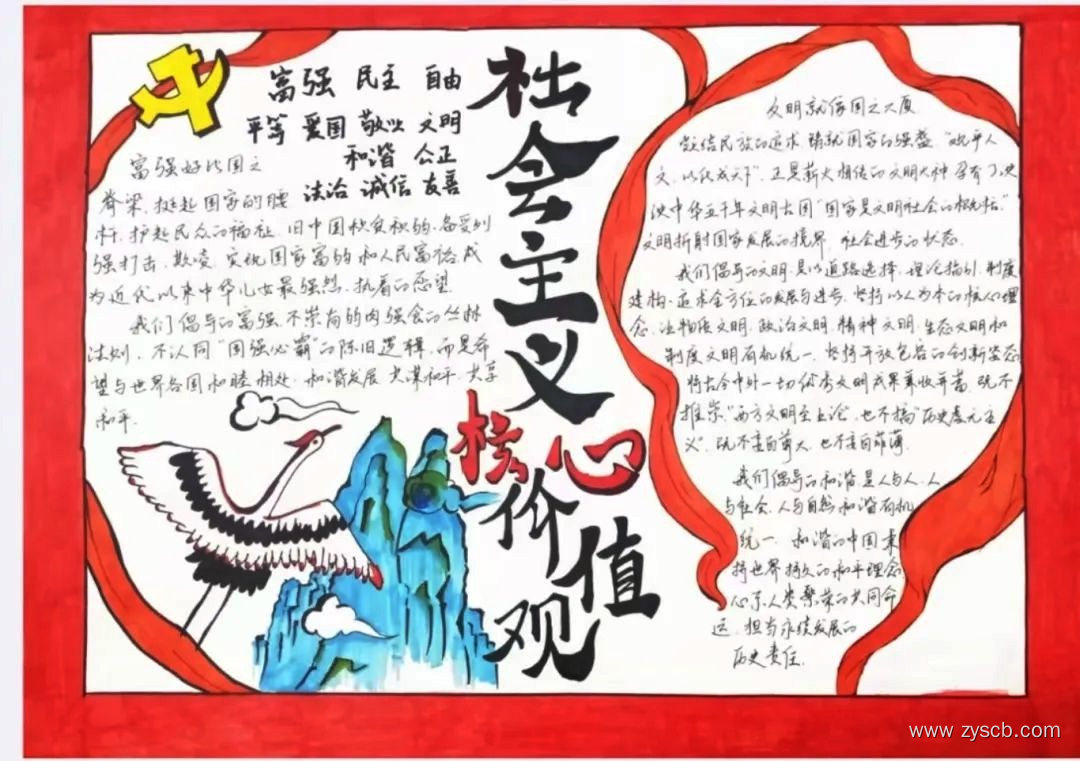 富强 民主 自由
平等 爱国 敬业 文明
和谐 公正
法治 诚信 友善
社会主义
核心
价值观
富强好比国之
脊梁，挺起国家的腰
杆，护起民众的福祉。旧中国积贫积弱，备受列
强打击、欺凌，实现国家富强和人民富裕，成
为近代以来中华儿女最强烈、执着的愿望。
我们倡导的富强，不崇尚弱肉强食的丛林
法则，不认同"国强必霸"的陈旧逻辑，而是希
望与世界各国和睦相处、和谐发展，共谋和平、共享
和平。
文明就像国之大厦
凝结民族的追求，铸就国家的强盛。"观乎人
文，以化成天下"，正是薪火相传的文明火种孕育了泱
泱中华五千年文明古国"国家是文明社会的概括。"
文明折射国家发展的境界，社会进步的状态。
我们倡导的文明，是以道路选择，理论指引，制度
建构，追求全方位的发展与进步，坚持以人为本的核心理
念，让物质文明，政治文明，精神文明，生态文明和
制度文明有机统一，坚持开放包容的创新姿态
将古今中外一切优秀文明成果兼收并蓄，既不
推崇"西方文明至上论，也不搞"历史虚无主
义"，既不妄自尊大，也不妄自菲薄。
我们倡导的和谐，是人与人，人
与社会，人与自然和谐有机
统一，和谐的中国秉
持世界持久的和平理念
心系人类繁荣的共同命
运，担当永续发展的
历史责任.
www.zyscb.com